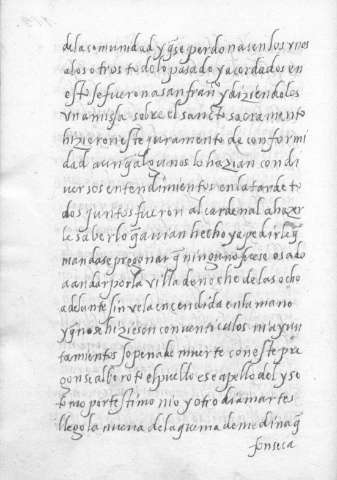 de la comunidad y q̃ se perdonasen los unos
a los otros todo lo pasado y acordados en
esto se fueron a san franco y diziendoles
una misa sobre el sancto sacramento
hizieron este juramento de conformi
dad aunq̃ algunos lo hazian con di
versos entendimientos en la tarde to
dos juntos fueron al cardenal a hazer
le saber lo q̃ avian hecho y a pedirle q̃
mandase pregonar q̃ ninguno fuese osado
a andar por la villa de noche de las ocho
adelante sin vela encendida en la mano
y q̃ no se hiziesen conventiculos ni ayun
tamientos so pena de muerte con este pre
gon se alboroto el pueblo e se apello del y se
tomo por testimonio y otro dia martes
llego la nueva de la quema de medina q̃
fonseca